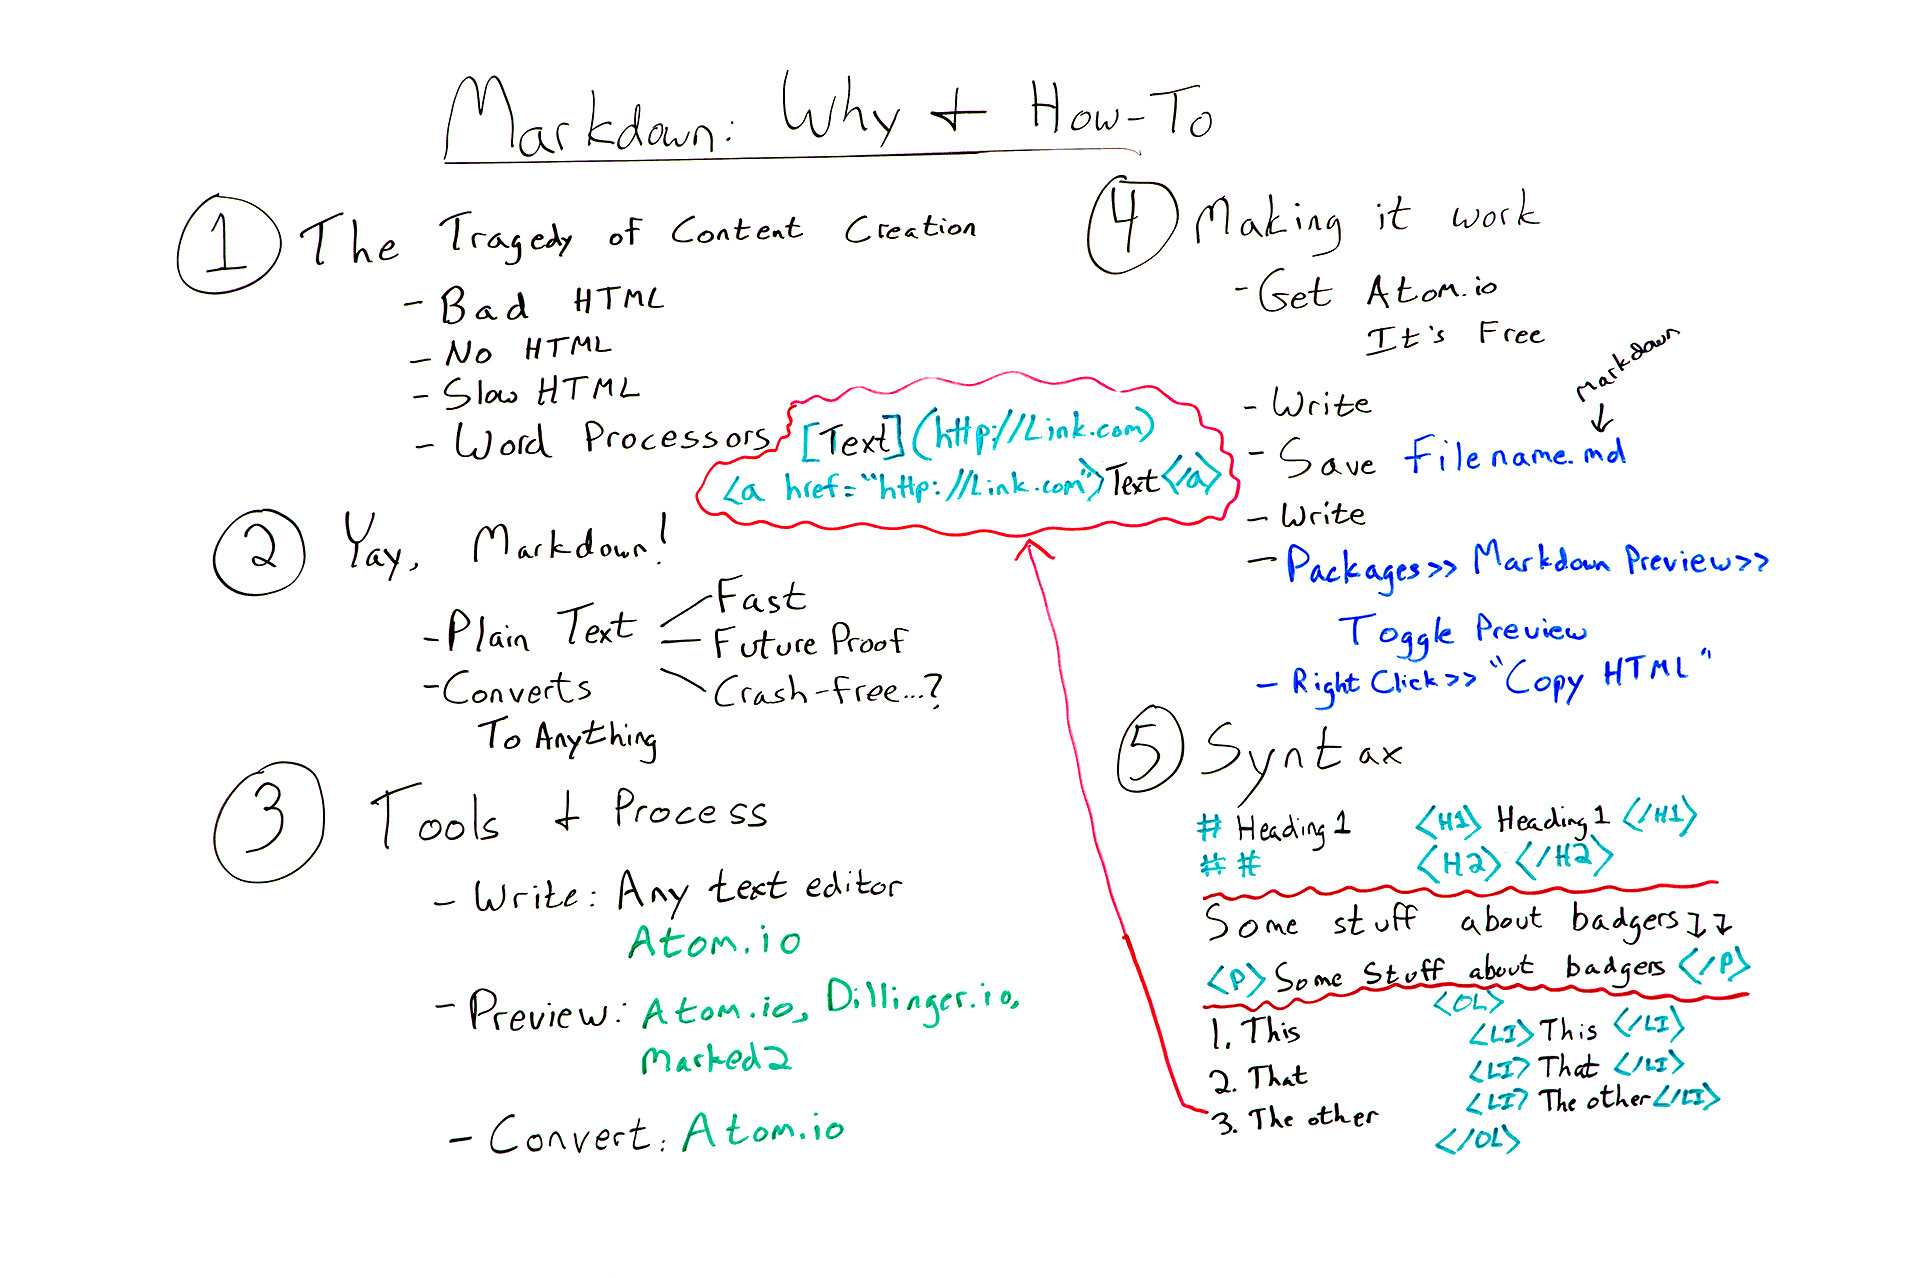 Markdown: Why + How-To
1 The Tragedy of Content Creation
- Bad HTML
- No HTML
- Slow HTML
- Word Processors
[Text](http://Link.com)
<a href="http://Link.com">Text</a>
2 Yay, Markdown!
- Plain Text
Fast
Future Proof
Crash-free...?
- Converts
To Anything
3 Tools + Process
- Write: Any text editor
Atom.io
- Preview: Atom.io, Dillinger.io,
Marked2
- Convert: Atom.io
4 Making it work
- Get Atom.io
It's Free
- Write
Markdown
↓
- Save Filename.md
- Write
- Packages>> Markdown Preview>>
Toggle Preview
- Right Click>> "Copy HTML"
5 Syntax
# Heading 1 <H1> Heading 1 </H1>
## <H2> </H2>
Some stuff about badgers↓↓
<P> Some Stuff about badgers </P>
<OL>
1. This <LI> This </LI>
2. That <LI> That </LI>
3. The other <LI> The other </LI>
</OL>